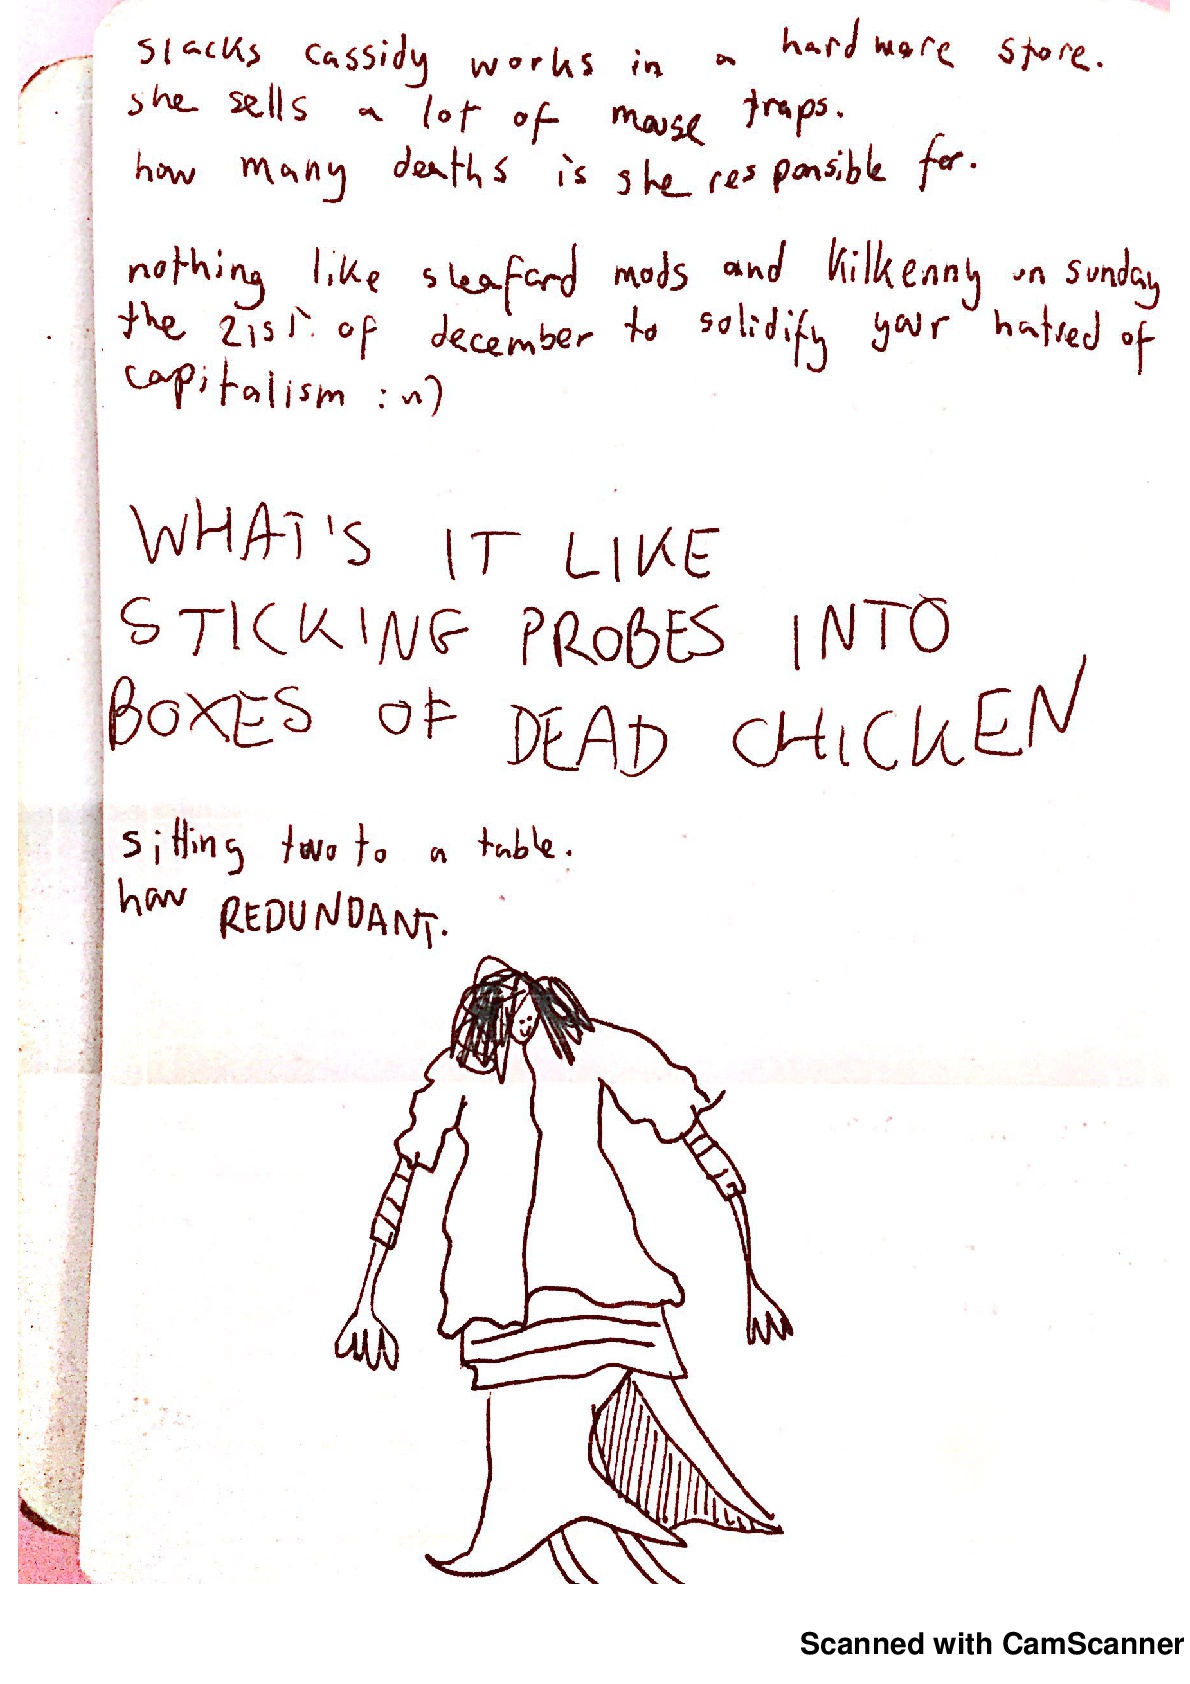 slacks cassidy works in a hardware store.
she sells a lot of mouse traps.
how many deaths is she responsible for.
nothing like sleaford mods and kilkenny on sunday
the 21st. of december to solidify your hatred of
capitalism :n)
WHAT'S IT LIKE
STICKING PROBES INTO
BOXES OF DEAD CHICKEN
sitting two to a table.
how REDUNDANT.
Scanned with CamScanner